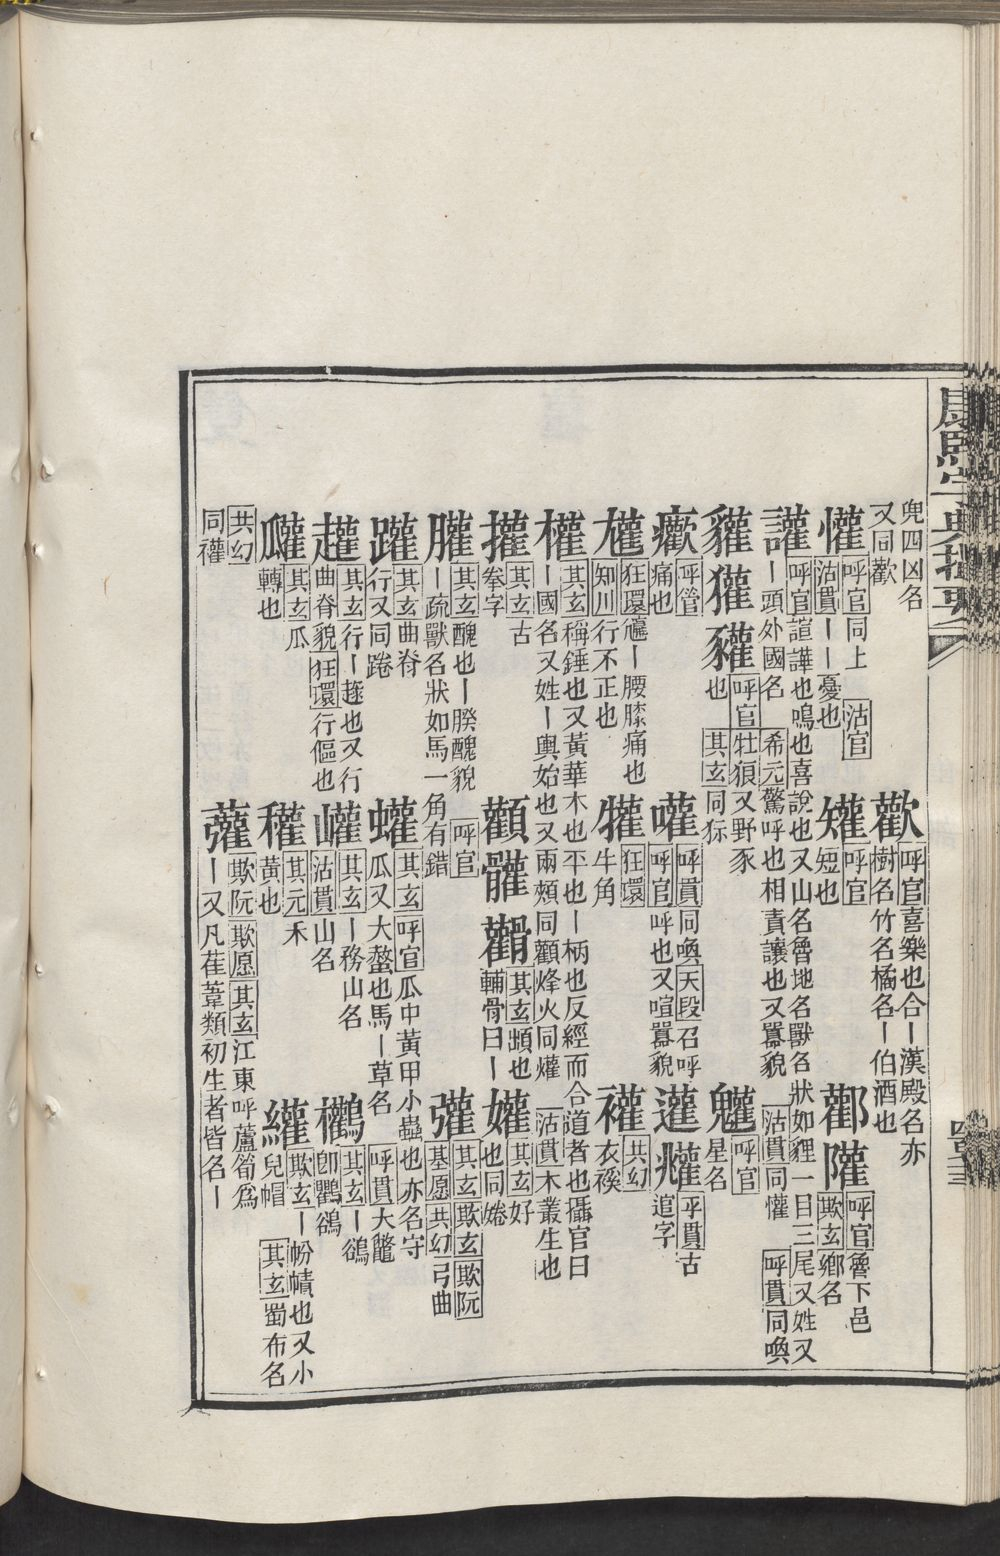 康熙字典撮要
兜四凶名
又同歡
歡 呼官 喜樂也合丨漢殿名亦
樹名竹名橘名丨伯酒也
懽 呼官 同上 沽官
沽貫 丨丨憂也
矔 呼官
短也
酄 隬 呼官 魯下邑
欺玄 鄉名
讙 呼官 諠譁也鳴也喜說也又山名魯地名獸名狀如貍一目三尾又姓又
丨頭外國名 希元 驚呼也相責讓也又囂貌 沽貫 同懽 呼貫 同喚
貛 獾 豲 呼官 牡狼又野豕
也 其玄 同狋
魓 呼官
星名
癨 呼管
痛也
嚾 呼貫 同喚 天段 召呼
呼官 呼也又喧囂貌
乎貫 古
逭字
尯 狂環 尶丨腰膝痛也
知川 行不正也
犨 狂環
牛角
襸 共幻
衣襚
權 其玄 稱錘也又黃華木也平也丨柄也反經而合道者也攝官曰
丨國名又姓丨輿始也又兩頰同顴烽火同爟 沽貫 木叢生也
㩲 其玄 古
拳字
顴 髋 其玄 䪼也
輔骨曰丨
孉 其玄 好
也同婘
臛 其玄 醜也丨䐡醜貌 呼官
丨疏獸名狀如馬一角有錯
彏 其玄 欺玄 欺阮
基愿 共幻 弓曲
躩 其玄 曲脊
行又同踡
蠸 其玄 呼官 瓜中黃甲小蟲也亦名守
瓜又大螯也馬丨草名 呼貫 大鼈
趯 其玄 行丨趗也又行
曲脊貌 狂環 行傴也
巏 其玄 丨務山名
沽貫 山名
鸛 其玄 丨鵒
卽鸜鵒
㼋 其玄 瓜
轉也
穲 其元 禾
黃也
纙 欺玄 丨帉幘也又小
兒帽 其玄 蜀布名
共幻
同襸
虇 欺阮 欺愿 其玄 江東呼蘆筍爲
丨又凡萑葦類初生者皆名丨